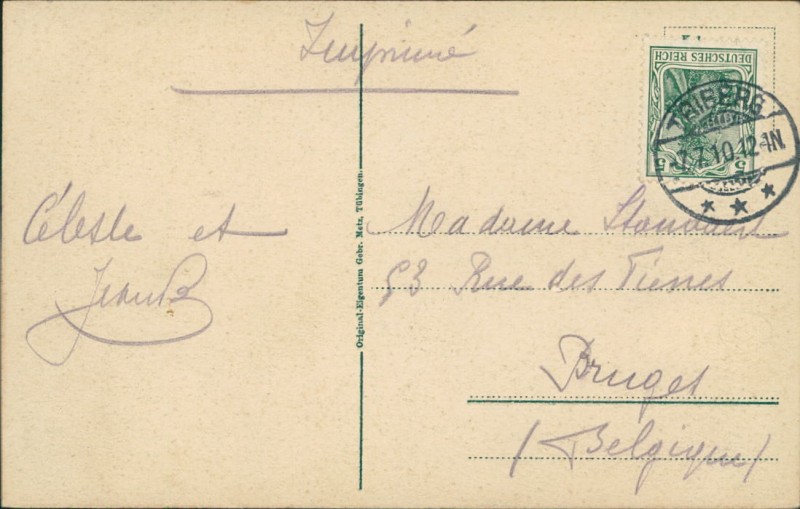 Imprimé
DEUTSCHES REICH
5 5
TRIBERG
7.7.10.12-1N.
* * *
Céleste et
Jean B
Original-Eigentum Gebr. Metz, Tübingen.
Madame
53 Rue des
Bruges
(Belgique)